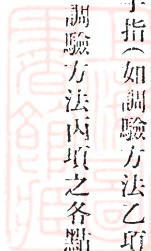 指（如調驗方法乙項
調驗方法丙項之各點